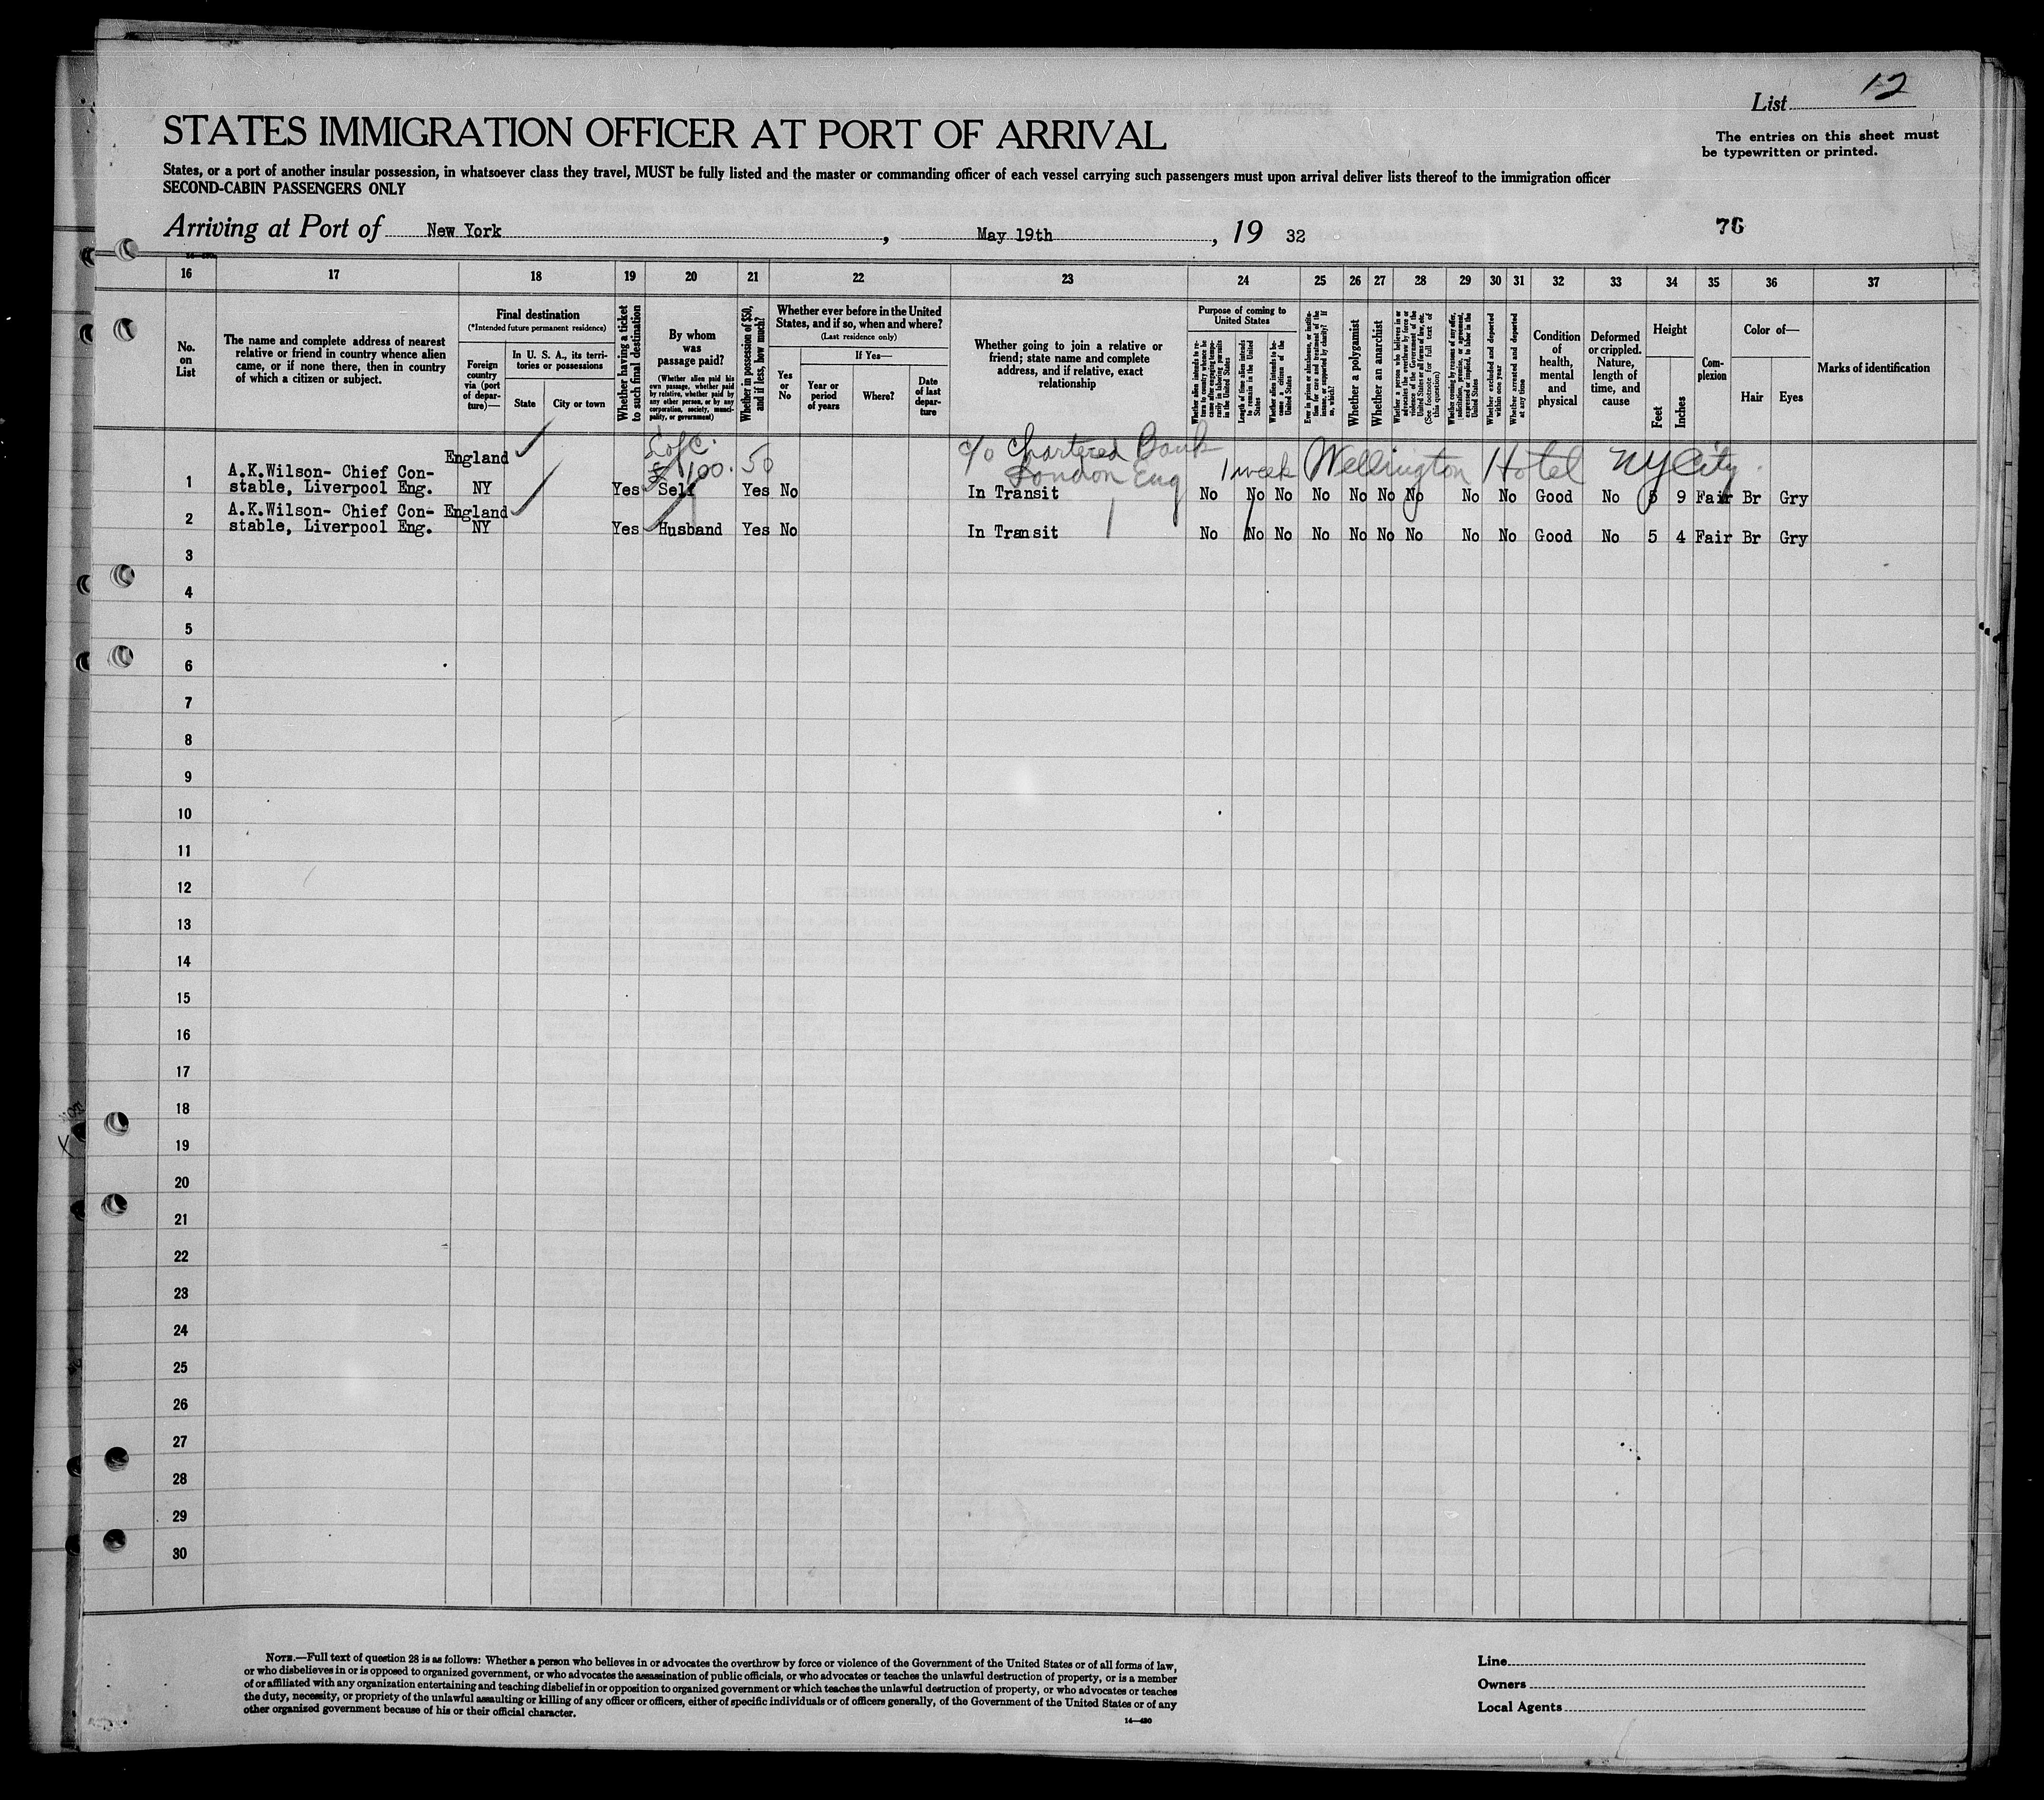 List 12
STATES IMMIGRATION OFFICER AT PORT OF ARRIVAL
The entries on this sheet must
be typewritten or printed.
States, or a port of another insular possession, in whatsoever class they travel, MUST be fully listed and the master or commanding officer of each vessel carrying such passengers must upon arrival deliver lists thereof to the immigration officer
SECOND-CABIN PASSENGERS ONLY
Arriving at Port of New York, May 19th, 19 32
76
16 17 18 19 20 21 22 23 24 25 26 27 28 29 30 31 32 33 34 35 36 37
No. on List
The name and complete address of nearest
relative or friend in country whence alien
came, or if none there, then in country
of which a citizen or subject.
Final destination
(*Intended future permanent residence)
Foreign country via (port of departure)—
In U. S. A., its territories or possessions
State
City or town
Whether having a ticket
to such final destination
By whom was passage paid?
(Whether alien paid his
own passage, whether paid
by relative, whether paid by
any other person, or by any
corporation, society, munici-
pality, or government)
Whether in possession of $50,
and if less, how much?
Whether ever before in the United
States, and if so, when and where?
(Last residence only)
Yes or No
If Yes—
Year or period of years
Where?
Date of last depar-
ture
Whether going to join a relative or
friend; state name and complete
address, and if relative, exact
relationship
Purpose of coming to
United States
Length of time alien intends
to remain in the United
States
Whether alien intends to be-
come a citizen of the
United States
Whether a polygamist
Whether an anarchist
(See footnote for full text of
this question)
Whether excluded and deported
within one year
Whether arrested and deported
at any time
Condition of health, mental and physical
Deformed or crippled. Nature, length of time, and cause
Height
Feet
Inches
Com-
plexion
Color of—
Hair
Eyes
Marks of identification
£ 100. 50
c/o Chartered Bank
London Eng
1 week Wellington Hotel NY City.
1 A.K.Wilson- Chief Con- England
stable, Liverpool Eng. NY Yes Self Yes No In Transit No No No No No No No No No Good No 5 9 Fair Br Gry
2 A.K.Wilson- Chief Con- England
stable, Liverpool Eng. NY Yes Husband Yes No In Transit No No No No No No No No No Good No 5 4 Fair Br Gry
3
4
5
6
7
8
9
10
11
12
13
14
15
16
17
18
19
20
21
22
23
24
25
26
27
28
29
30
NOTE.—Full text of question 28 is as follows: Whether a person who believes in or advocates the overthrow by force or violence of the Government of the United States or of all forms of law,
or who disbelieves in or is opposed to organized government, or who advocates the assassination of public officials, or who advocates or teaches the unlawful destruction of property, or is a member
of or affiliated with any organization entertaining and teaching disbelief in or opposition to organized government or which teaches the unlawful destruction of property, or who advocates or teaches
the duty, necessity, or propriety of the unlawful assaulting or killing of any officer or officers, either of specific individuals or of officers generally, of the Government of the United States or of any
other organized government because of his or their official character.
14—480
Line
Owners
Local Agents